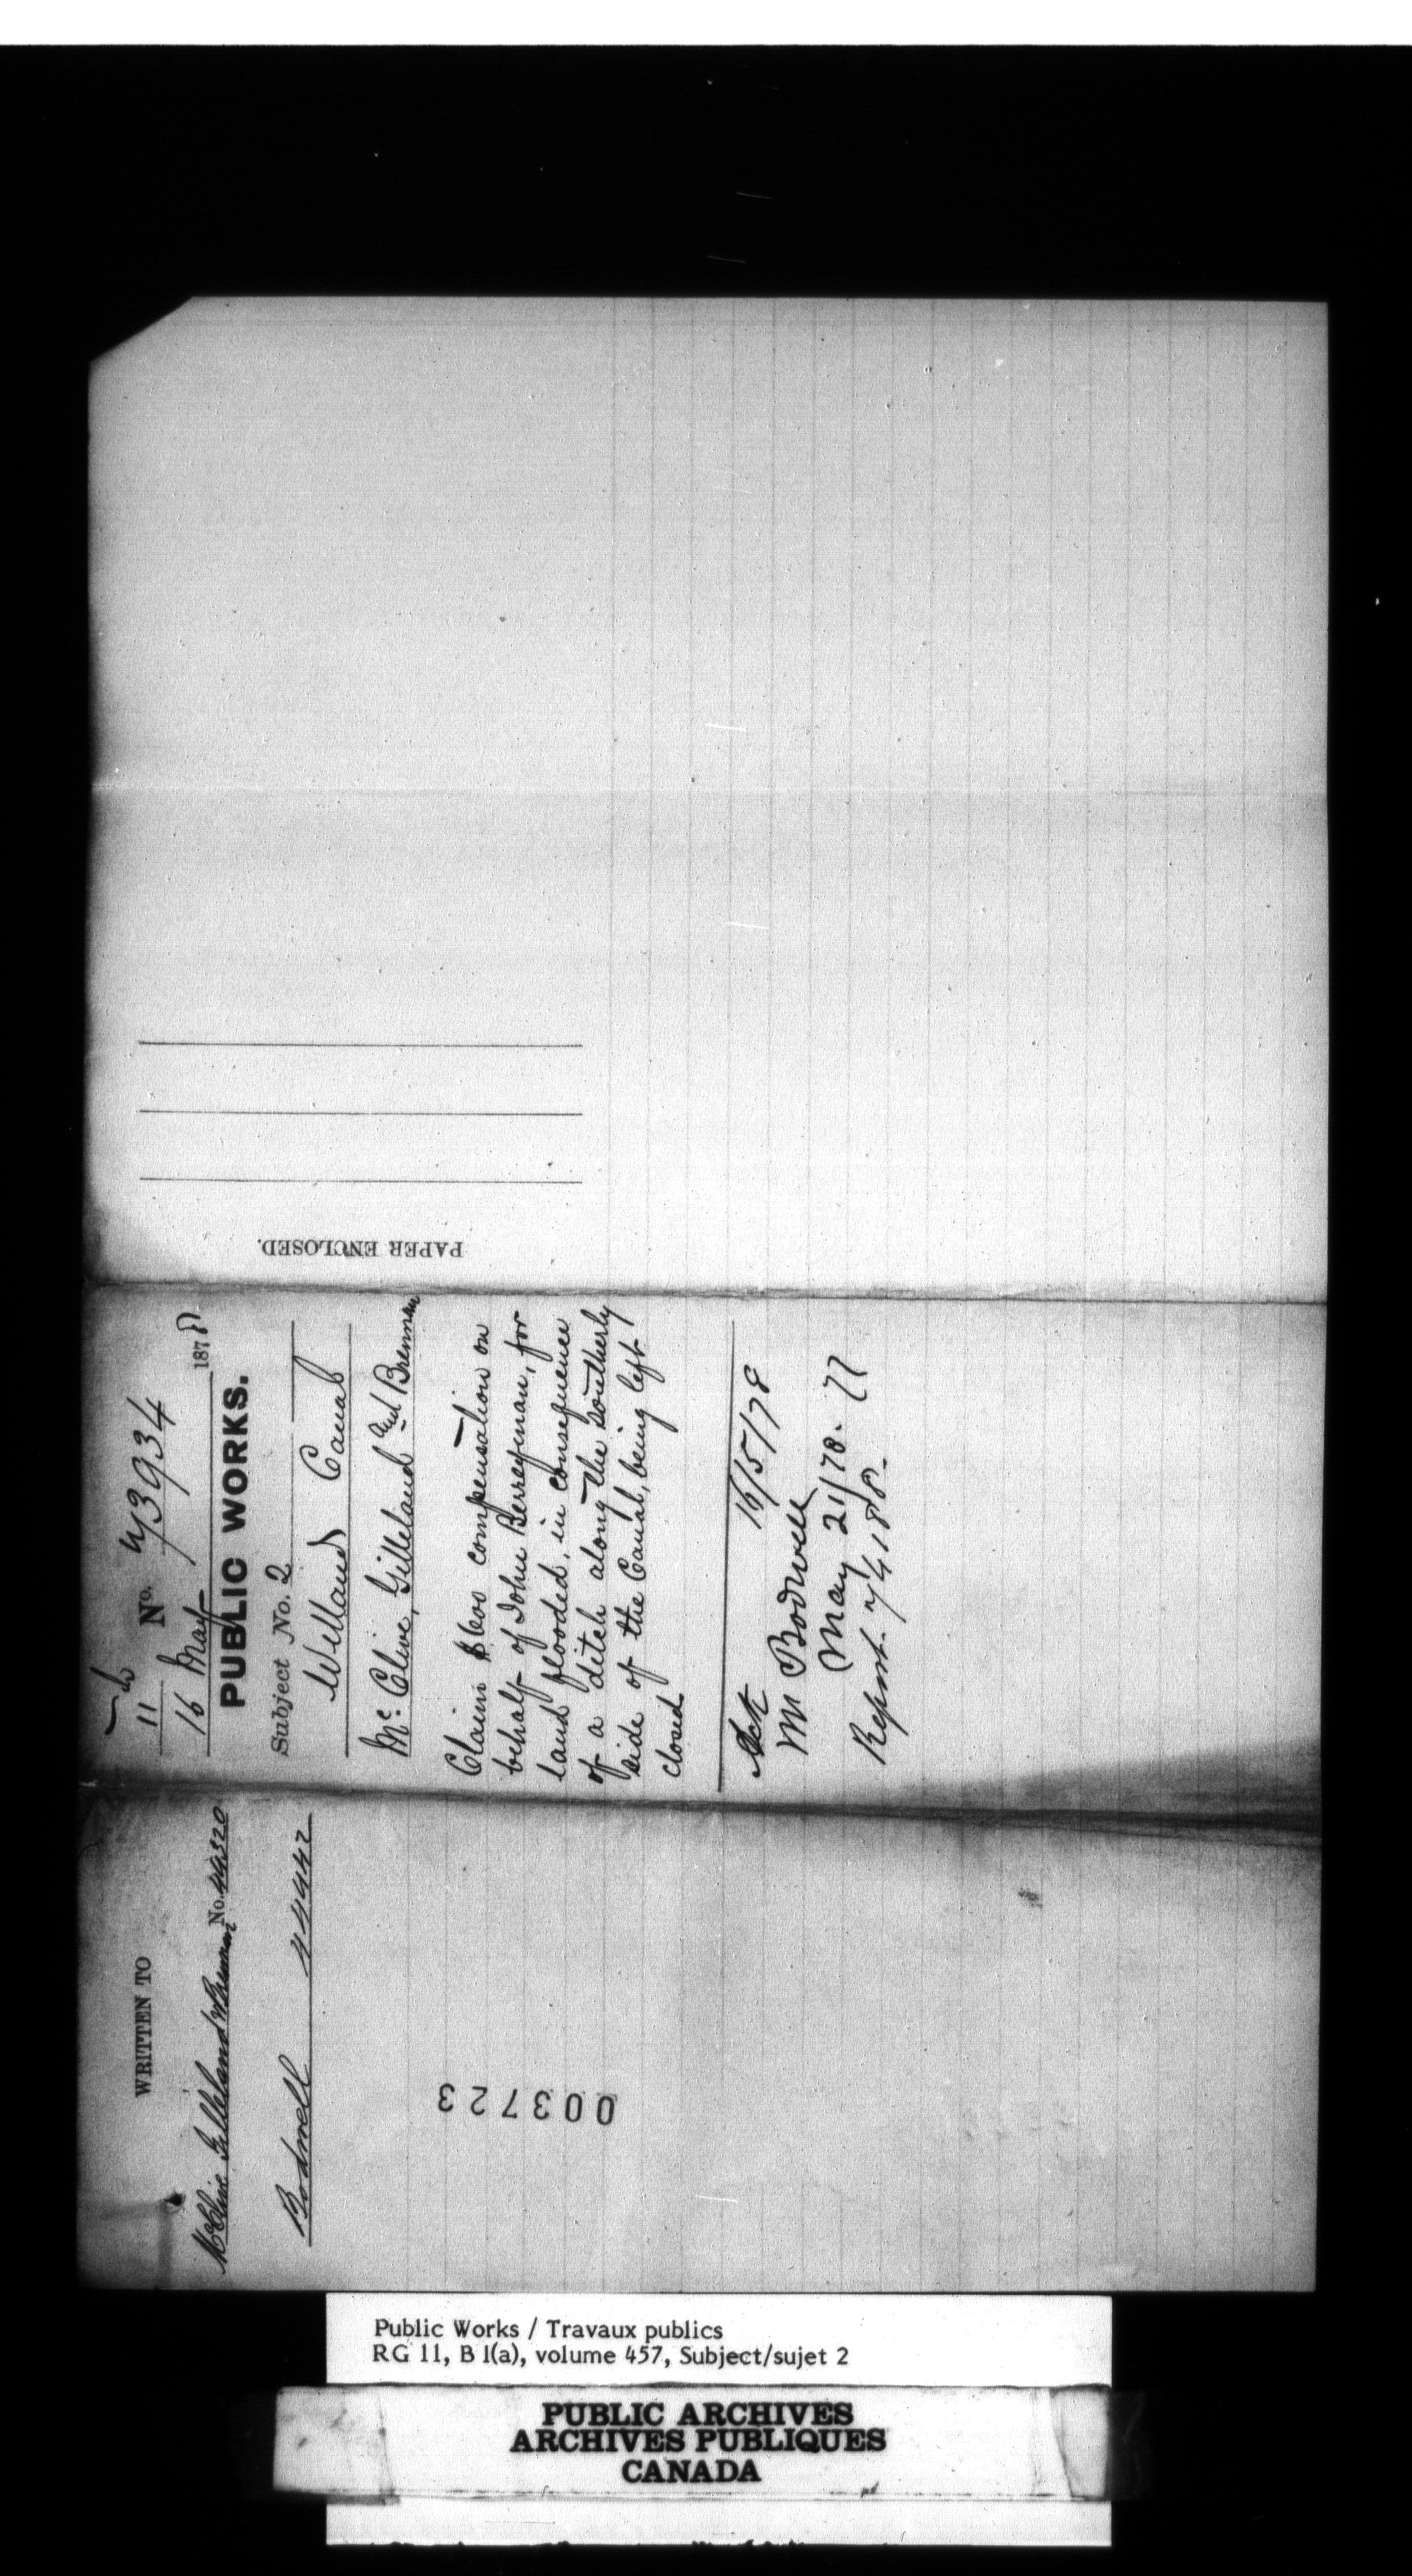 11
No. 73934
16 May 1878
PUBLIC WORKS.
Subject No. 2
Welland Canal
Mc Clive, Gilleland and Brennan
Claim $600 compensation on
behalf of John Berregman, for
land flooded, in consequence
of a ditch along the Southerly
side of the Canal, being left
closed
Ack 16/5/78
Mr Bodwell
May 21/78.
Report. 74188
PAPER ENCLOSED.
WRITTEN TO
McClive Gilleland & Brennan No.
Bodwell
003723
Public Works / Travaux publics
RG 11, B 1(a), volume 457, Subject/sujet 2
PUBLIC ARCHIVES
ARCHIVES PUBLIQUES
CANADA